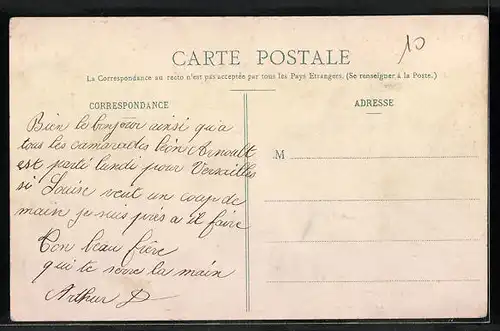 CARTE POSTALE
10
La Correspondance au recto n'est pas acceptée par tous les Pays Etrangers. (Se renseigner à la Poste.)
CORRESPONDANCE
Bien le bonjour ainsi qu'a
tous les camarades léon Arnoult
est parti lundi pour Versailles
si Louise veut un coup de
main je suis près a il faire
Ton beau frère
qui te serre la main
Arthur D
ADRESSE
M